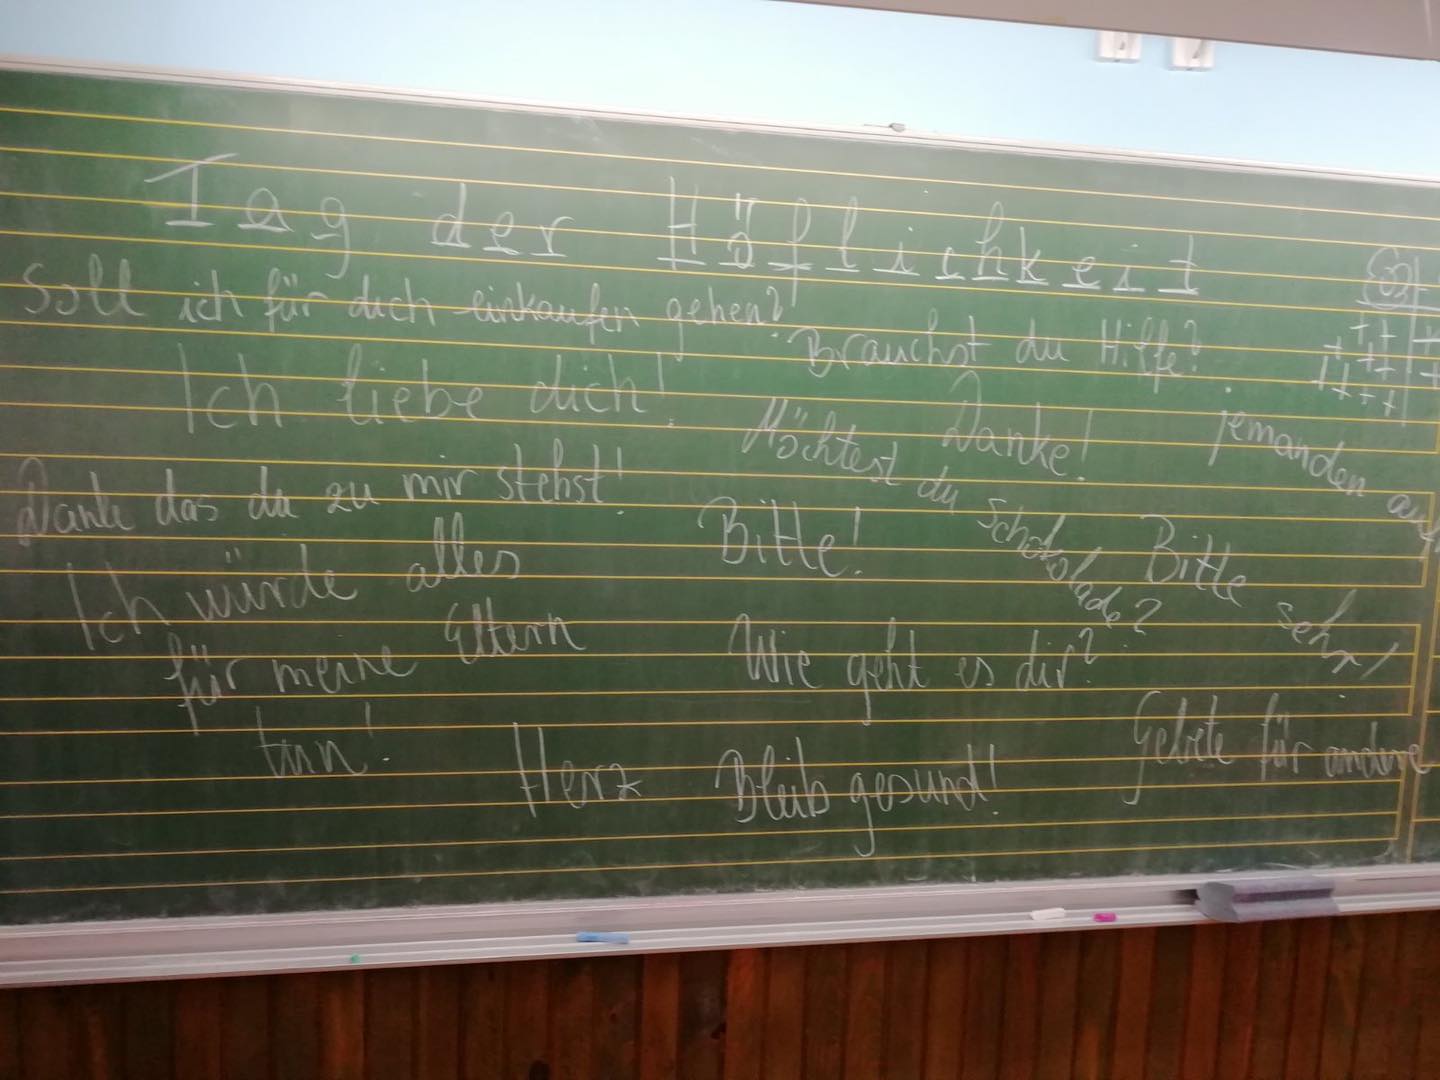 Tag der Höflichkeit
Soll ich für dich einkaufen gehen?
Brauchst du Hilfe?
Ich liebe dich!
Danke!
jemanden
Möchtest du Schokolade?
Dank das du zu mir stehst!
Bitte!
Bitte sehr!
Ich würde alles
für meine Eltern
tun!
Wie geht es dir?
Herz
Bleib gesund!
Gebete für andere